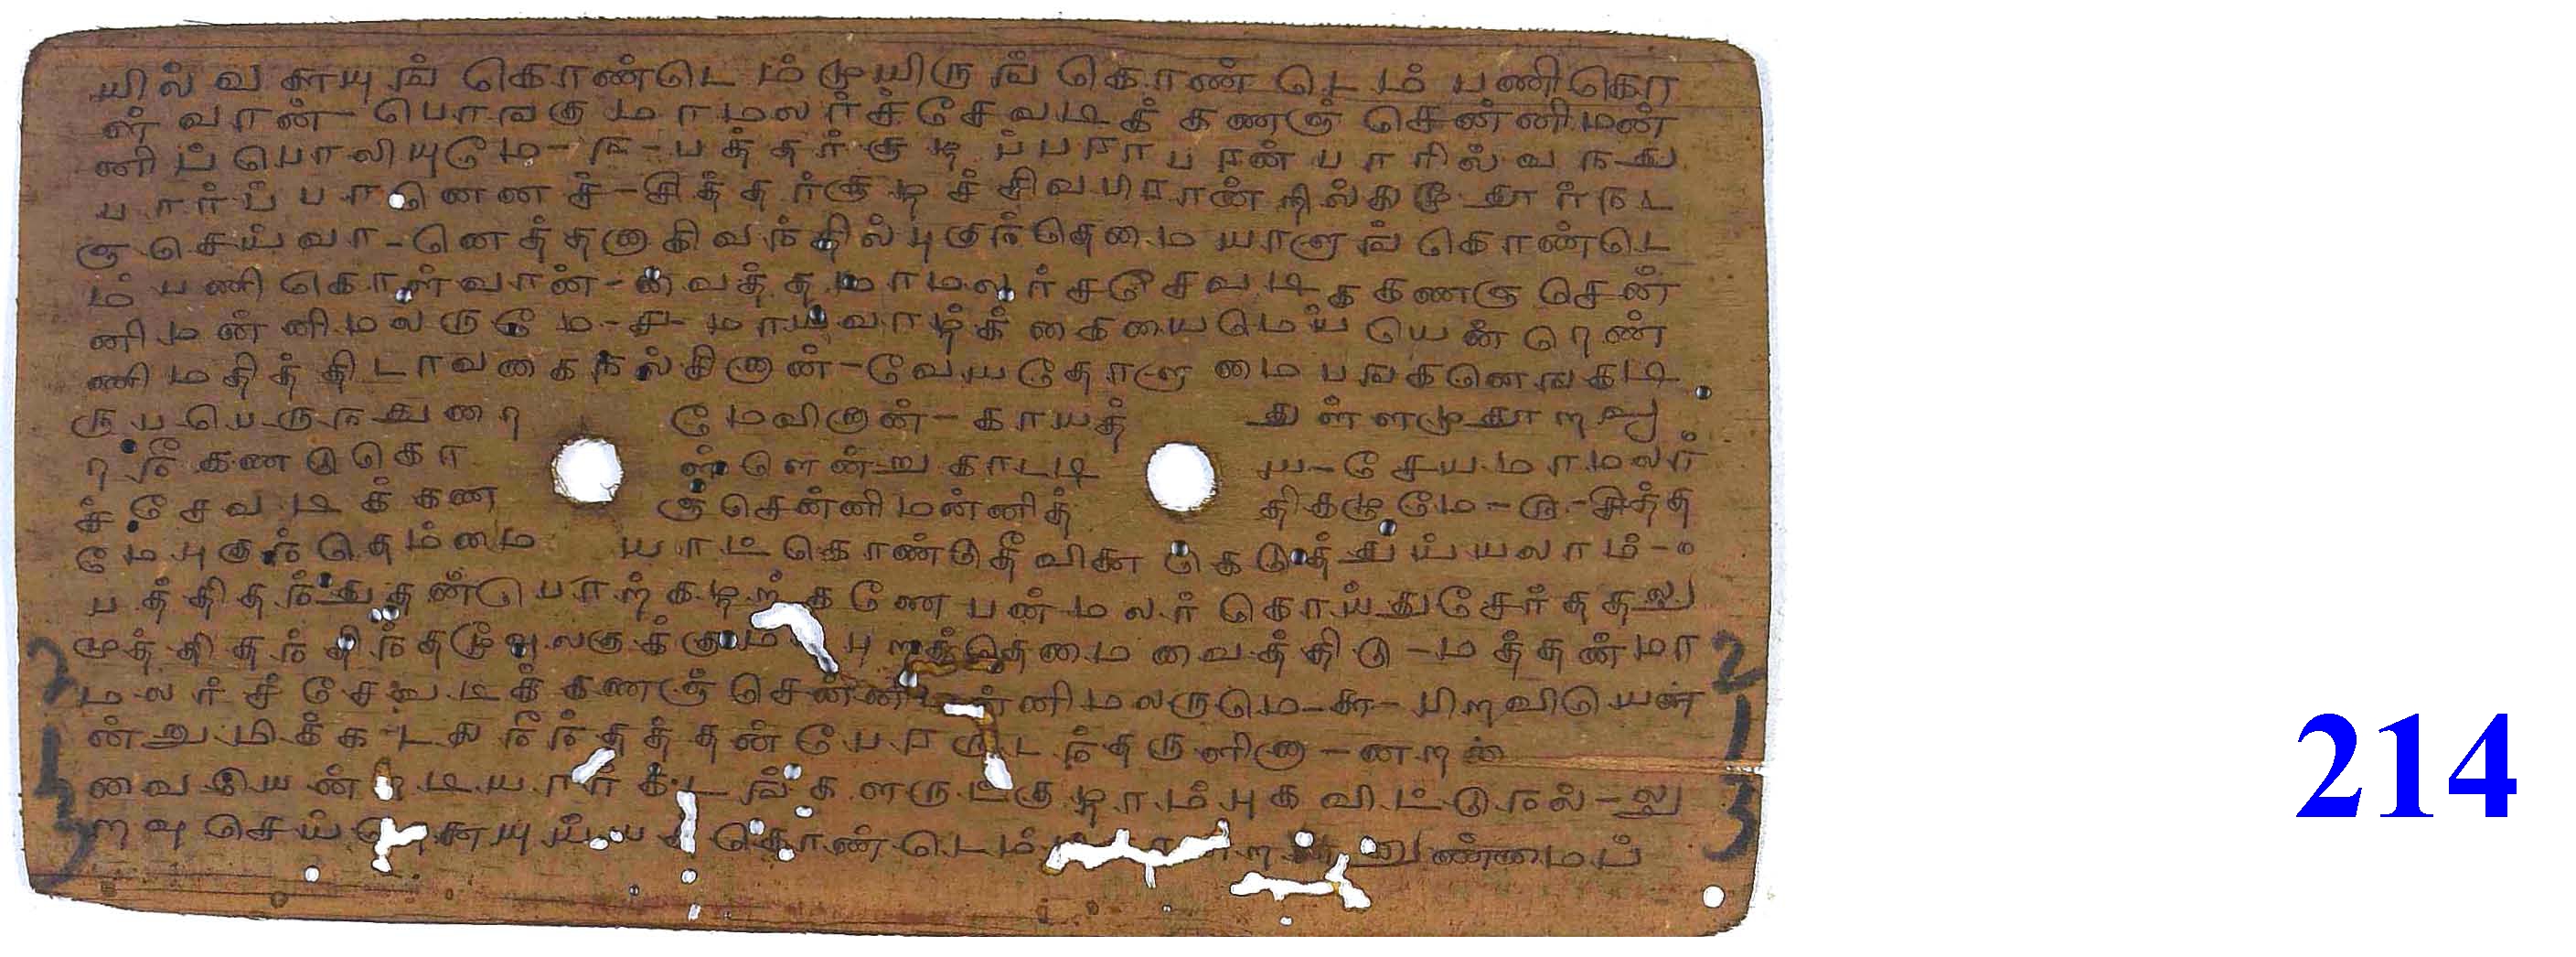 யில் வளையுங் கொண்டெ ம்முயிருங் கொண் டெ ம் பணிகொ
ள் வான் பொங்கு மாமலர்ச்சேவடிக் கணஞ் சென்னிமன்
னிப் பொலியுமே - ௩ - பத்தர்குழ ப்பராபரன் பாரில் வந்து
பார்ப் பானெனச் - சித்தர்குழச் சிவபிரான் றில்லைமூதூர்நட
ஞ் செய்வா - னெத்தனாகிவந்தில் புகுந்தெமை யாளுங் கொண்டெ
ம் பணி கொள்வான் - வைத்த மாமலர் சசேவடிக கணஞ சென்
னிமன் னிமலருமே - ௪ - மாய வாழ்க் கையைமெய் யென் றெண்
ணி மதித்திடாவகைநல்கினான் - வேயதோளு மை பஙகனெஙகடி
ருபபெருநதுறை மேவினான் - காயத் துள்ளமுதூறஊ
றநீ கணடுகொ ள்ளென்று காடடி ய - சேயமாமலர்
ச்சேவடிக் கண ஞ்சென்னிமன்னித் திகழுமே - ௫ - சித்த
மேபுகுந்தெம்மை யாட் கொண்டுதீவினை கெடுத்துய்யலாம் -
பத்திதந்துதன்பொற்கழற்கணே பன்மலர் கொய்துசேர்ததலு
முத்திதந்திந்தமூவுலகுக்கும புறத்தெமை வைத்திடு - மத்தன்மா
மலர்ச் சேவடிக் கணஞ் சென்னி மன்னிமலருமெ - ௬ - பிறவியென்
ன்னுமிக்கடலை நீந்தத்தன் பேரருடந்தருளினா - னறவை
வையென்றடியார்கடங்களருட்குழாம்புகவிட்டுநல் - லு
றவு செய்தெனையுய்யக் கொண்டெம் உண்மைப்
214